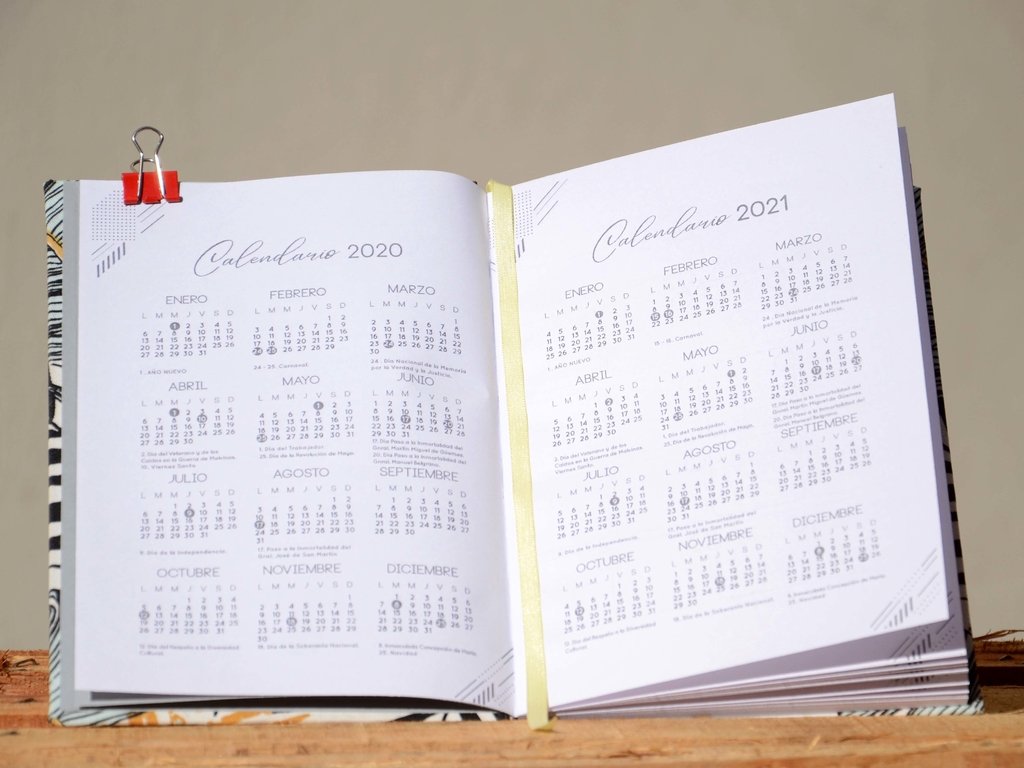 Calendario 2020
ENERO
L M M J V S D
1 2 3 4 5
6 7 8 9 10 11 12
13 14 15 16 17 18 19
20 21 22 23 24 25 26
27 28 29 30 31
1. AÑO NUEVO
FEBRERO
L M M J V S D
1 2
3 4 5 6 7 8 9
10 11 12 13 14 15 16
17 18 19 20 21 22 23
24 25 26 27 28 29
24 - 25. Carnaval.
MARZO
L M M J V S D
1
2 3 4 5 6 7 8
9 10 11 12 13 14 15
16 17 18 19 20 21 22
23 24 25 26 27 28 29
30
24. Día Nacional de la Memoria
por la Verdad y la Justicia.
ABRIL
L M M J V S D
1 2 3 4 5
6 7 8 9 10 11 12
13 14 15 16 17 18 19
20 21 22 23 24 25 26
27 28 29 30
2. Día del Veterano y de los
Caídos en la Guerra de Malvinas.
10. Viernes Santo.
MAYO
L M M J V S D
1 2 3
4 5 6 7 8 9 10
11 12 13 14 15 16 17
18 19 20 21 22 23 24
25 26 27 28 29 30 31
1. Día del Trabajador.
25. Día de la Revolución de Mayo.
JUNIO
L M M J V S D
1 2 3 4 5 6 7
8 9 10 11 12 13 14
15 16 17 18 19 20 21
22 23 24 25 26 27 28
29 30
17. Día Paso a la Inmortalidad del
Gral. Martín Miguel de Güemes.
20. Día Paso a la Inmortalidad del
Gral. Manuel Belgrano.
JULIO
L M M J V S D
1 2 3 4 5
6 7 8 9 10 11 12
13 14 15 16 17 18 19
20 21 22 23 24 25 26
27 28 29 30 31
9. Día de la Independencia.
AGOSTO
L M M J V S D
1 2
3 4 5 6 7 8 9
10 11 12 13 14 15 16
17 18 19 20 21 22 23
24 25 26 27 28 29 30
31
17. Paso a la Inmortalidad del
Gral. José de San Martín
SEPTIEMBRE
L M M J V S D
1 2 3 4 5 6
7 8 9 10 11 12 13
14 15 16 17 18 19 20
21 22 23 24 25 26 27
28 29 30
OCTUBRE
L M M J V S D
1 2 3 4
5 6 7 8 9 10 11
12 13 14 15 16 17 18
19 20 21 22 23 24 25
26 27 28 29 30 31
12. Día del Respeto a la Diversidad
Cultural.
NOVIEMBRE
L M M J V S D
1
2 3 4 5 6 7 8
9 10 11 12 13 14 15
16 17 18 19 20 21 22
23 24 25 26 27 28 29
30
18. Día de la Soberanía Nacional.
DICIEMBRE
L M M J V S D
1 2 3 4 5 6
7 8 9 10 11 12 13
14 15 16 17 18 19 20
21 22 23 24 25 26 27
28 29 30 31
8. Inmaculada Concepción de María.
25. Navidad
Calendario 2021
ENERO
L M M J V S D
1 2 3
4 5 6 7 8 9 10
11 12 13 14 15 16 17
18 19 20 21 22 23 24
25 26 27 28 29 30 31
1. AÑO NUEVO
FEBRERO
L M M J V S D
1 2 3 4 5 6 7
8 9 10 11 12 13 14
15 16 17 18 19 20 21
22 23 24 25 26 27 28
15 - 16. Carnaval.
MARZO
L M M J V S D
1 2 3 4 5 6 7
8 9 10 11 12 13 14
15 16 17 18 19 20 21
22 23 24 25 26 27 28
29 30 31
24. Día Nacional de la Memoria
por la Verdad y la Justicia.
ABRIL
L M M J V S D
1 2 3 4
5 6 7 8 9 10 11
12 13 14 15 16 17 18
19 20 21 22 23 24 25
26 27 28 29 30
2. Día del Veterano y de los
Caídos en la Guerra de Malvinas.
Viernes Santo.
MAYO
L M M J V S D
1 2
3 4 5 6 7 8 9
10 11 12 13 14 15 16
17 18 19 20 21 22 23
24 25 26 27 28 29 30
31
1. Día del Trabajador.
25. Día de la Revolución de Mayo.
JUNIO
L M M J V S D
1 2 3 4 5 6
7 8 9 10 11 12 13
14 15 16 17 18 19 20
21 22 23 24 25 26 27
28 29 30
17. Día Paso a la Inmortalidad del
Gral. Martín Miguel de Güemes.
20. Día Paso a la Inmortalidad del
Gral. Manuel Belgrano.
JULIO
L M M J V S D
1 2 3 4
5 6 7 8 9 10 11
12 13 14 15 16 17 18
19 20 21 22 23 24 25
26 27 28 29 30 31
9. Día de la Independencia.
AGOSTO
L M M J V S D
1
2 3 4 5 6 7 8
9 10 11 12 13 14 15
16 17 18 19 20 21 22
23 24 25 26 27 28 29
30 31
17. Paso a la Inmortalidad del
Gral. José de San Martín
SEPTIEMBRE
L M M J V S D
1 2 3 4 5
6 7 8 9 10 11 12
13 14 15 16 17 18 19
20 21 22 23 24 25 26
27 28 29 30
OCTUBRE
L M M J V S D
1 2 3
4 5 6 7 8 9 10
11 12 13 14 15 16 17
18 19 20 21 22 23 24
25 26 27 28 29 30 31
12. Día del Respeto a la Diversidad
Cultural.
NOVIEMBRE
L M M J V S D
1 2 3 4 5 6 7
8 9 10 11 12 13 14
15 16 17 18 19 20 21
22 23 24 25 26 27 28
29 30
18. Día de la Soberanía Nacional.
DICIEMBRE
L M M J V S D
1 2 3 4 5
6 7 8 9 10 11 12
13 14 15 16 17 18 19
20 21 22 23 24 25 26
27 28 29 30 31
8. Inmaculada Concepción de María.
25. Navidad